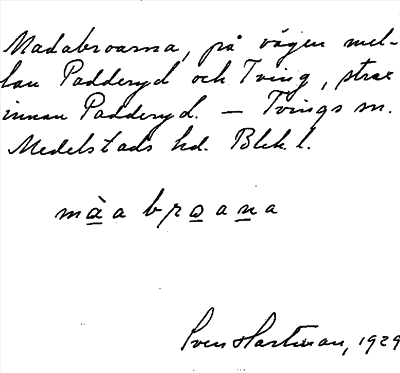 Madabroarna, på vägen mel-
lan Padderyd och Tving, strax
innan Padderyd. — Tvings sn.
Medelstads hd. Blek l.
màabroana
Sven Hartman, 1929